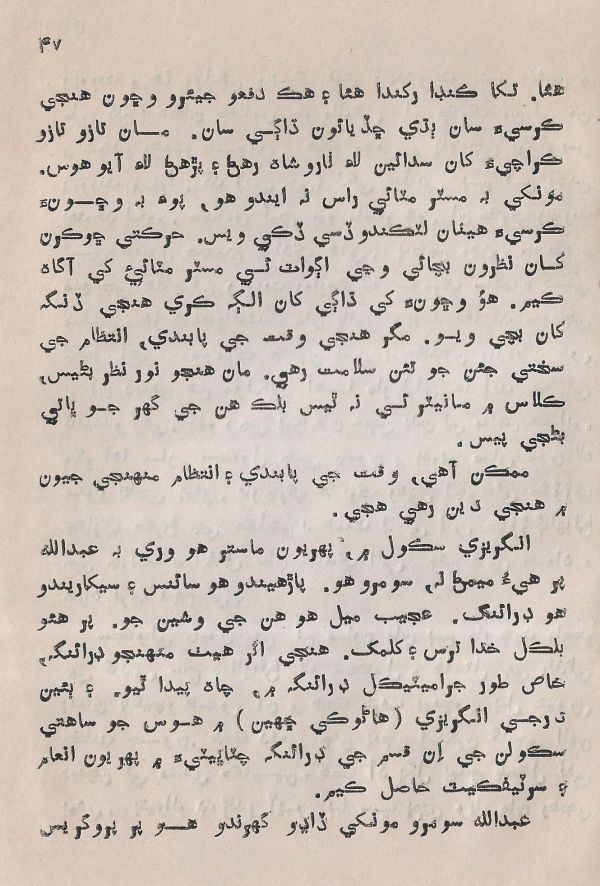 ۴۷
هئا. ٽڪا ڪنڊا رکندا هئا ۽ هڪ دفعو جيئرو وڇون هنجي
ڪرسيءَ سان ٻڌي ڇڏيائون ڌاڳي سان. مان تازو تازو
ڪراچيءَ کان سدائين لاءِ تاروشاه رهڻ ۽ پڙهڻ لاءِ آيو هوس.
مونکي به مسٽر مٽائي راس نه ايندو هو، پوءِ به وڇونءَ
ڪرسيءَ هيٺان لٽڪندو ڏسي ڏڪي ويس. حرڪتي ڇوڪرن
کان نظرون بچائي وڃي اڳواٽ ئي مسٽر مٽائيءَ کي آگاه
ڪيم. هوُ وڇونءَ کي ڌاڳي کان الڳ ڪري هنجي ڏنگ
کان بچي ويو. مگر هنجي وقت جي پابندي، انتظام جي
سختي جئن جو تئن سلامت رهي. مان هنجو نور نظر بڻيس،
ڪلاس ۾ مانيٽر ئي نه ٿيس بلڪ هن جي گهر جو ڀاتي
بڻجي پيس.
ممڪن آهي، وقت جي پابندي ۽ انتظام منهنجي جيون
۾ هنجي دين رهي هجي.
انگريزي سڪول ۾، پهريون ماستر هو وري به عبدالله
پر هيءُ ميمڻ نه، سومرو هو. پاڙهيندو هو سائنس ۽ سيکاريندو
هو ڊرائنگ. عجيب ميل هو هن جي وشين جو. پر هئو
بلڪل خدا ترس ۽ کلمک. هنجي اثر هيٺ منهنجو ڊرائنگ،
خاص طور جراميٽيڪل ڊرائنگ ۾، چاه پيدا ٿيو. ۽ ٻئين
درجي انگريزي (هاڻوڪي ڇهين) ۾ هوس جو ساهتي
سڪولن جي اِن قسم جي ڊرائنگ چٽاڀيٽيءَ ۾ پهريون انعام
۽ سرٽيفڪيٽ حاصل ڪيم.
عبدالله سومرو مونکي ڏاڍو گهرندو هو پر پروگريس